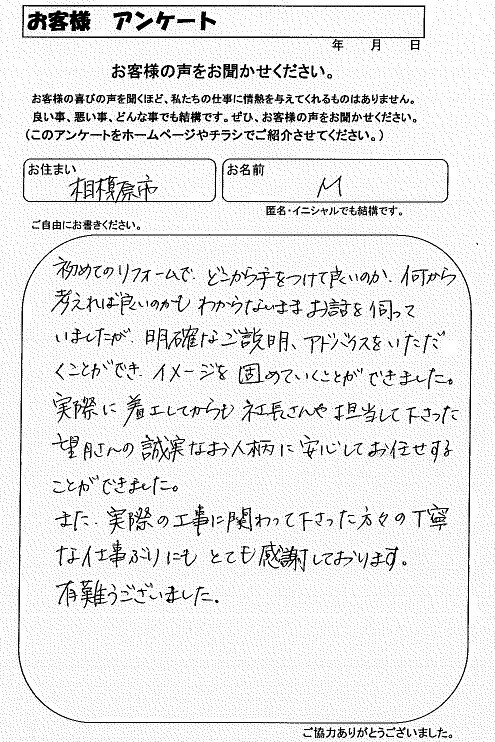 お客様 アンケート
年 月 日
お客様の声をお聞かせください。
お客様の喜びの声を聞くほど、私たちの仕事に情熱を与えてくれるものはありません。
良い事、悪い事、どんな事でも結構です。ぜひ、お客様の声をお聞かせください。
（このアンケートをホームページやチラシでご紹介させてください。）
お住まい
相模原市
お名前
M
匿名・イニシャルでも結構です。
ご自由にお書きください。
初めてのリフォームで、どこから手をつけて良いのか、何から
考えれば良いのかも わからないまま お話を伺って
いましたが、明確なご説明、アドバイスをいただ
くことができ、イメージを固めていくことができました。
実際に着工してからも 社長さんや担当して下さった
望月さんの誠実なお人柄に安心してお任せする
ことができました。
また、実際の工事に関わって下さった方々の丁寧
な仕事ぶりにも とても感謝しております。
有難うございました。
ご協力ありがとうございました。